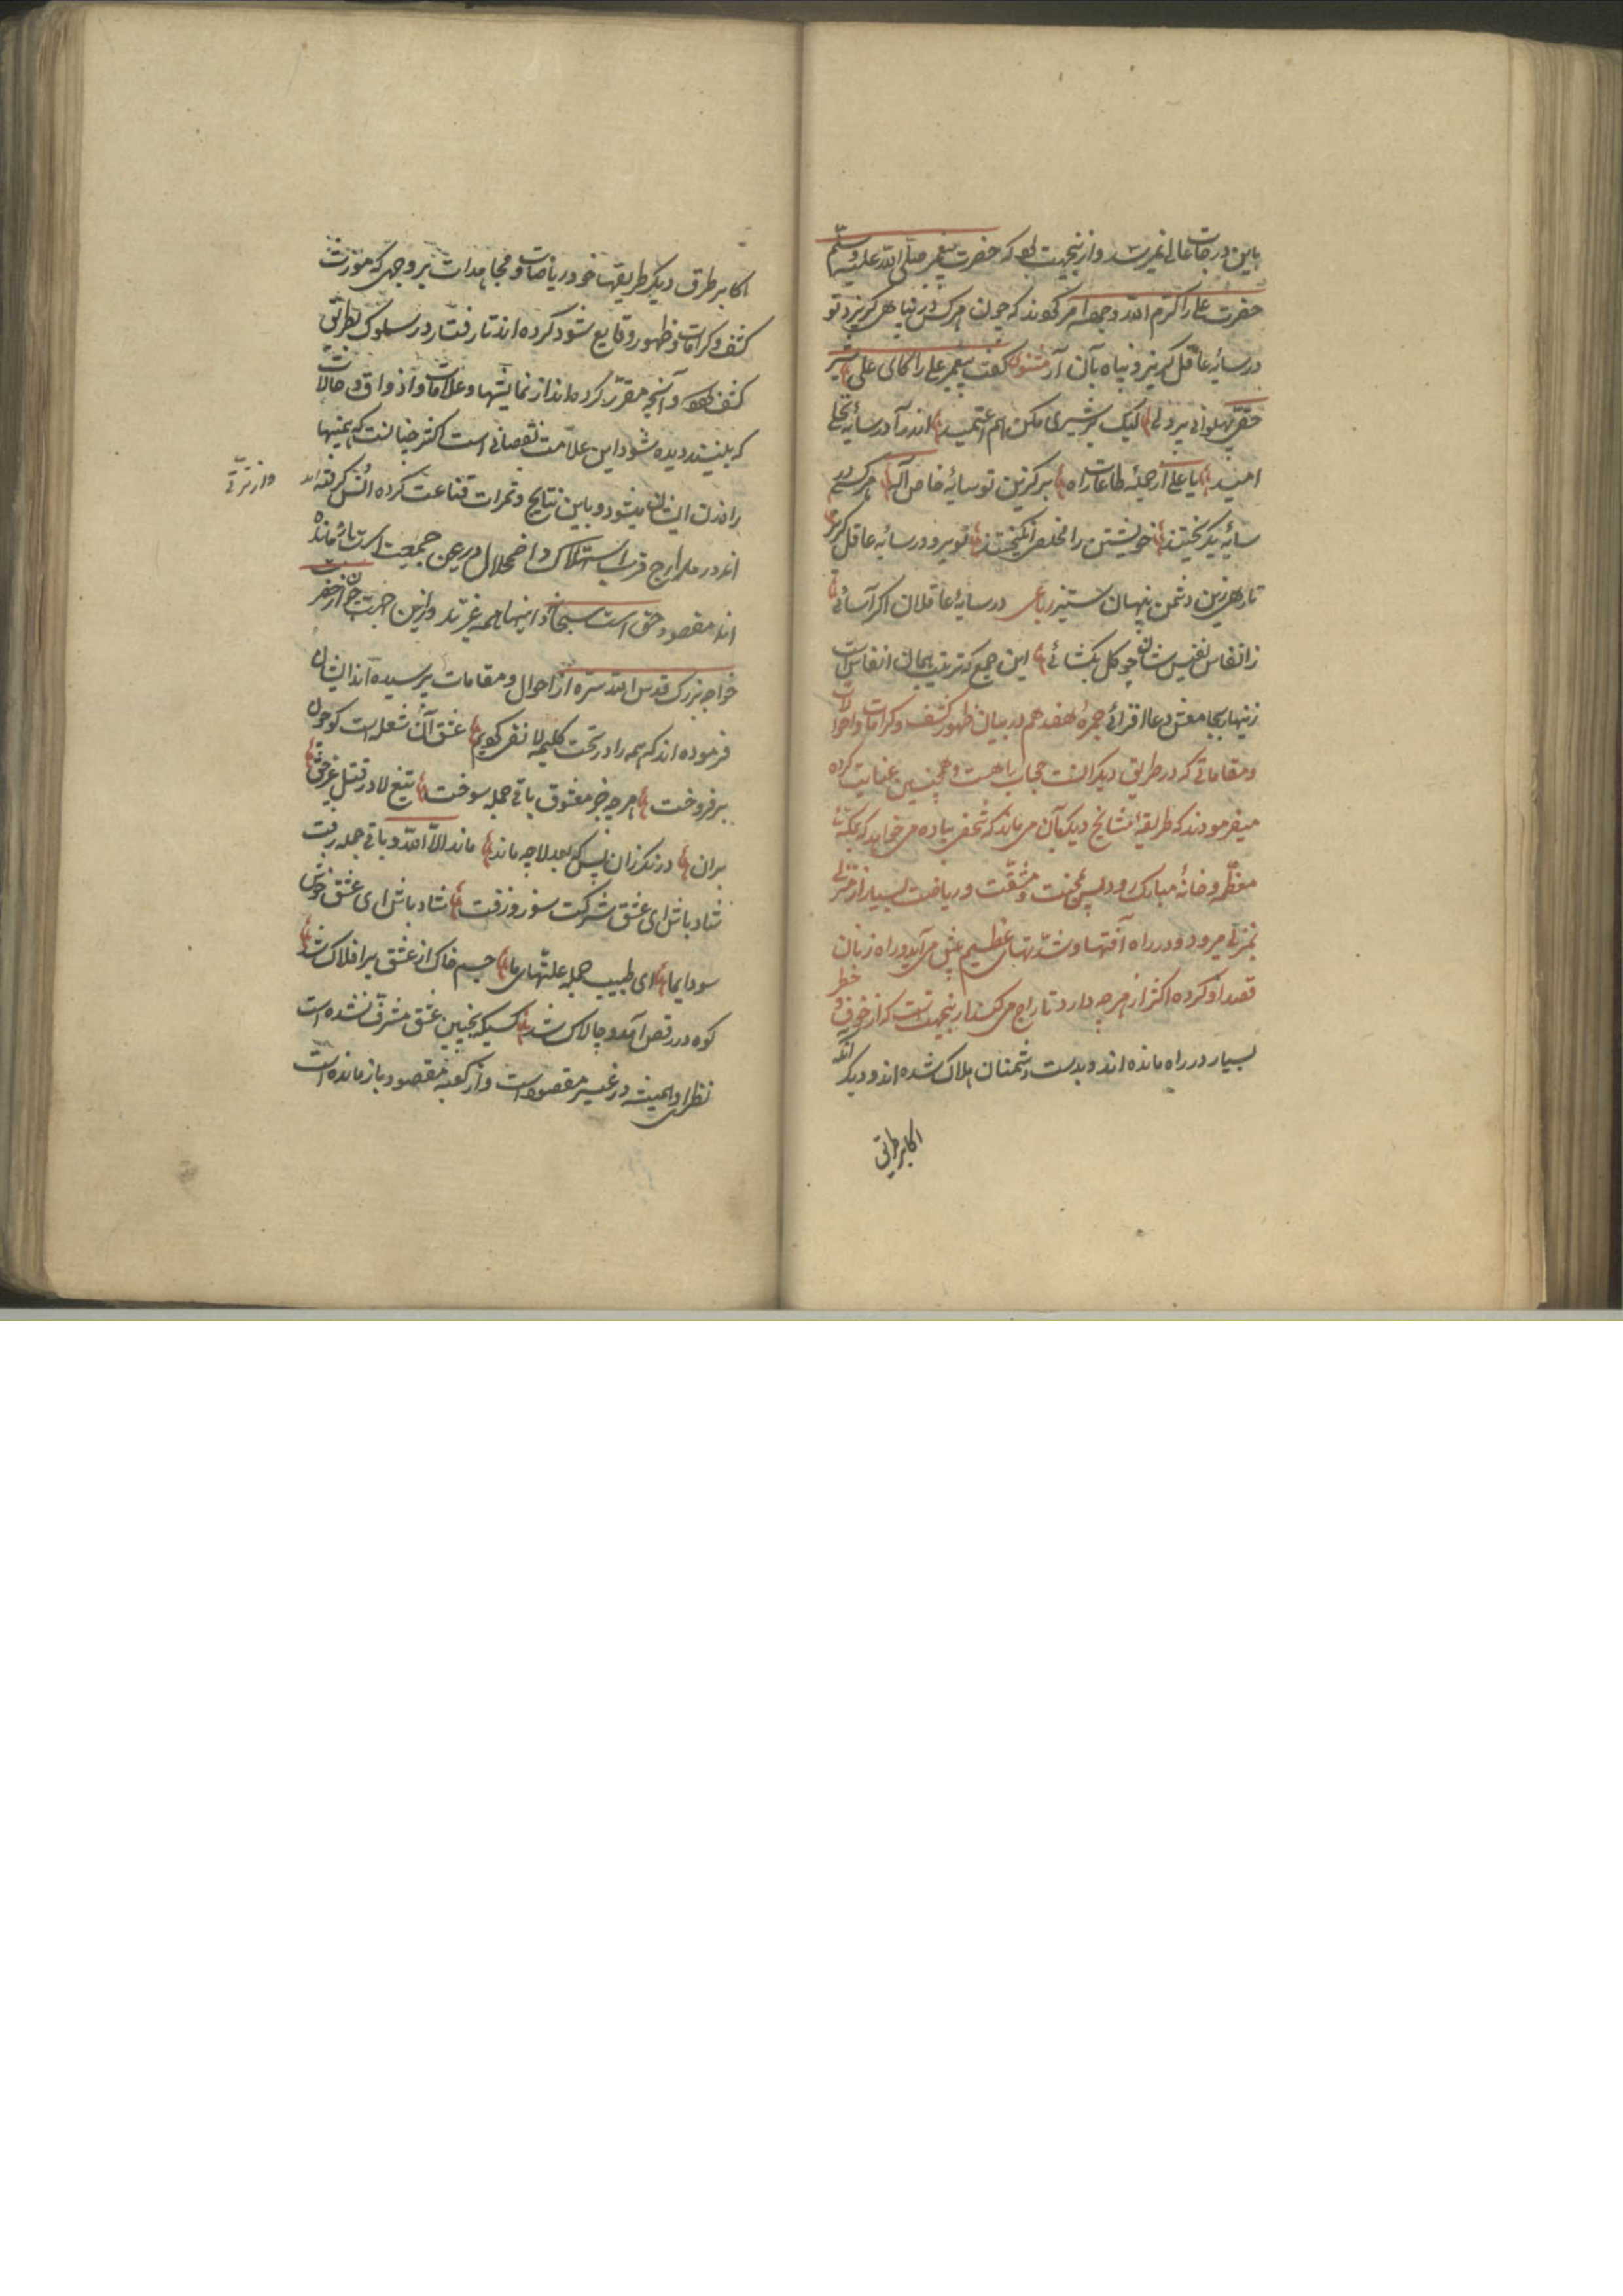 باین درجات عالی نمیرسد و ازینجهت بود که حضرت پیغمبر صلی الله علیه وسلم
حضرت علی را کرم الله وجهه امر کوند که چون هرکس در پناهی کریزد تو
در سایۀ عاقل کریز و پناه بآن آر مثنوی کفت پیغمبر علی را کای علی شیر
حقی پهلوانی پردلی لیک بر شیری مکن هم اعتمید اندرآ در سایۀ نخل
امید یا علی از جملۀ طاعات راه برکزین تو سایۀ خاص آله هرکسی در
سایۀ بکریختند خویشتن را مخلصی انکیختند تو برو در سایۀ عاقل کریز
تا رهی زین دشمن پنهان ستیز رباعی در سایۀ عاقلان اکر آسائی
ز انفاس نفیس شان چو کل بکشائی این جمع که تربیت بهمان انفاس است
زینهار بجا مغنی دعا افزائی حجرۀ هفدهم در بیان ظهور کشف و کرامات و احوالات
و مقاماتی که در طریق دیکرانست حجاب راهست و همچنین عنایت کرده
میفرمودند که طریقۀ مشایخ دیکر بآن می ماند که شخصی پیاده می خواهد که بمکۀ
معظم و خانۀ مبارک رود بس محنت و مشقت و ریاضت بسیار از منزلی
بمنزلی میرود و در راه آفتها و شدتهای عظیم پیش می آید و راه زنان
قصد او کرده اکثر از هرچه دارد تاراج می کنند ازینجهتست که از خوف و خطر
بسیار در راه مانده اند و بدست دشمنان هلاک شده اند و دیکر آنکه
اکابر طرق
اکابر طرق دیکر طریقها خود ریاضات و مجاهدات بر وجهی که مورث
کشف و کرامات و ظهور وقایع شود کرده اند تا رفتار در سلوک بطریق
کشف بود و آنچه مقرر کرده اند از نمایشها و علامات و اذواق و حالات
که بلیند دیده شود این علامت نقصانی است اکثر خیالست که همینها
راه زن ایشان میشود و باین نتایج و ثمرات قناعت کرده انس کرفته اند
و از ترقی
اند در مدارج قرب استهلاک و اضمحلال در عین جمعیت است باز مانده
اند مقصود حق است سبحانه اینها همه غیرند و ازین جهت چون از حضرت
خواجه بزرک قدس الله سره از احوال و مقامات پرسیده اند ایشان
فرموده اند که همه را در تحت کلیمه لا نفی کویم عشق آن شعله است کو چون
برفروخت هرچه جز معشوق باقی جمله سوخت تیغ لا در قتل غیر حق
براند درنکر زان پس که بعد لا چه ماند ماند الا الله و باقی جمله رفت
شاد باش ای عشق شرکت سوز و زفت شاد باش ای عشق خوش
سودای ما ای طبیب جمله علتهای ما جسم خاک از عشق بر افلاک شد
کوه در رقص آمد و چالاک شد کسیکه بچنین عشق مشرف نشده است
نظر او همیشه در غیر مقصود است و از کعبه مقصود باز مانده است